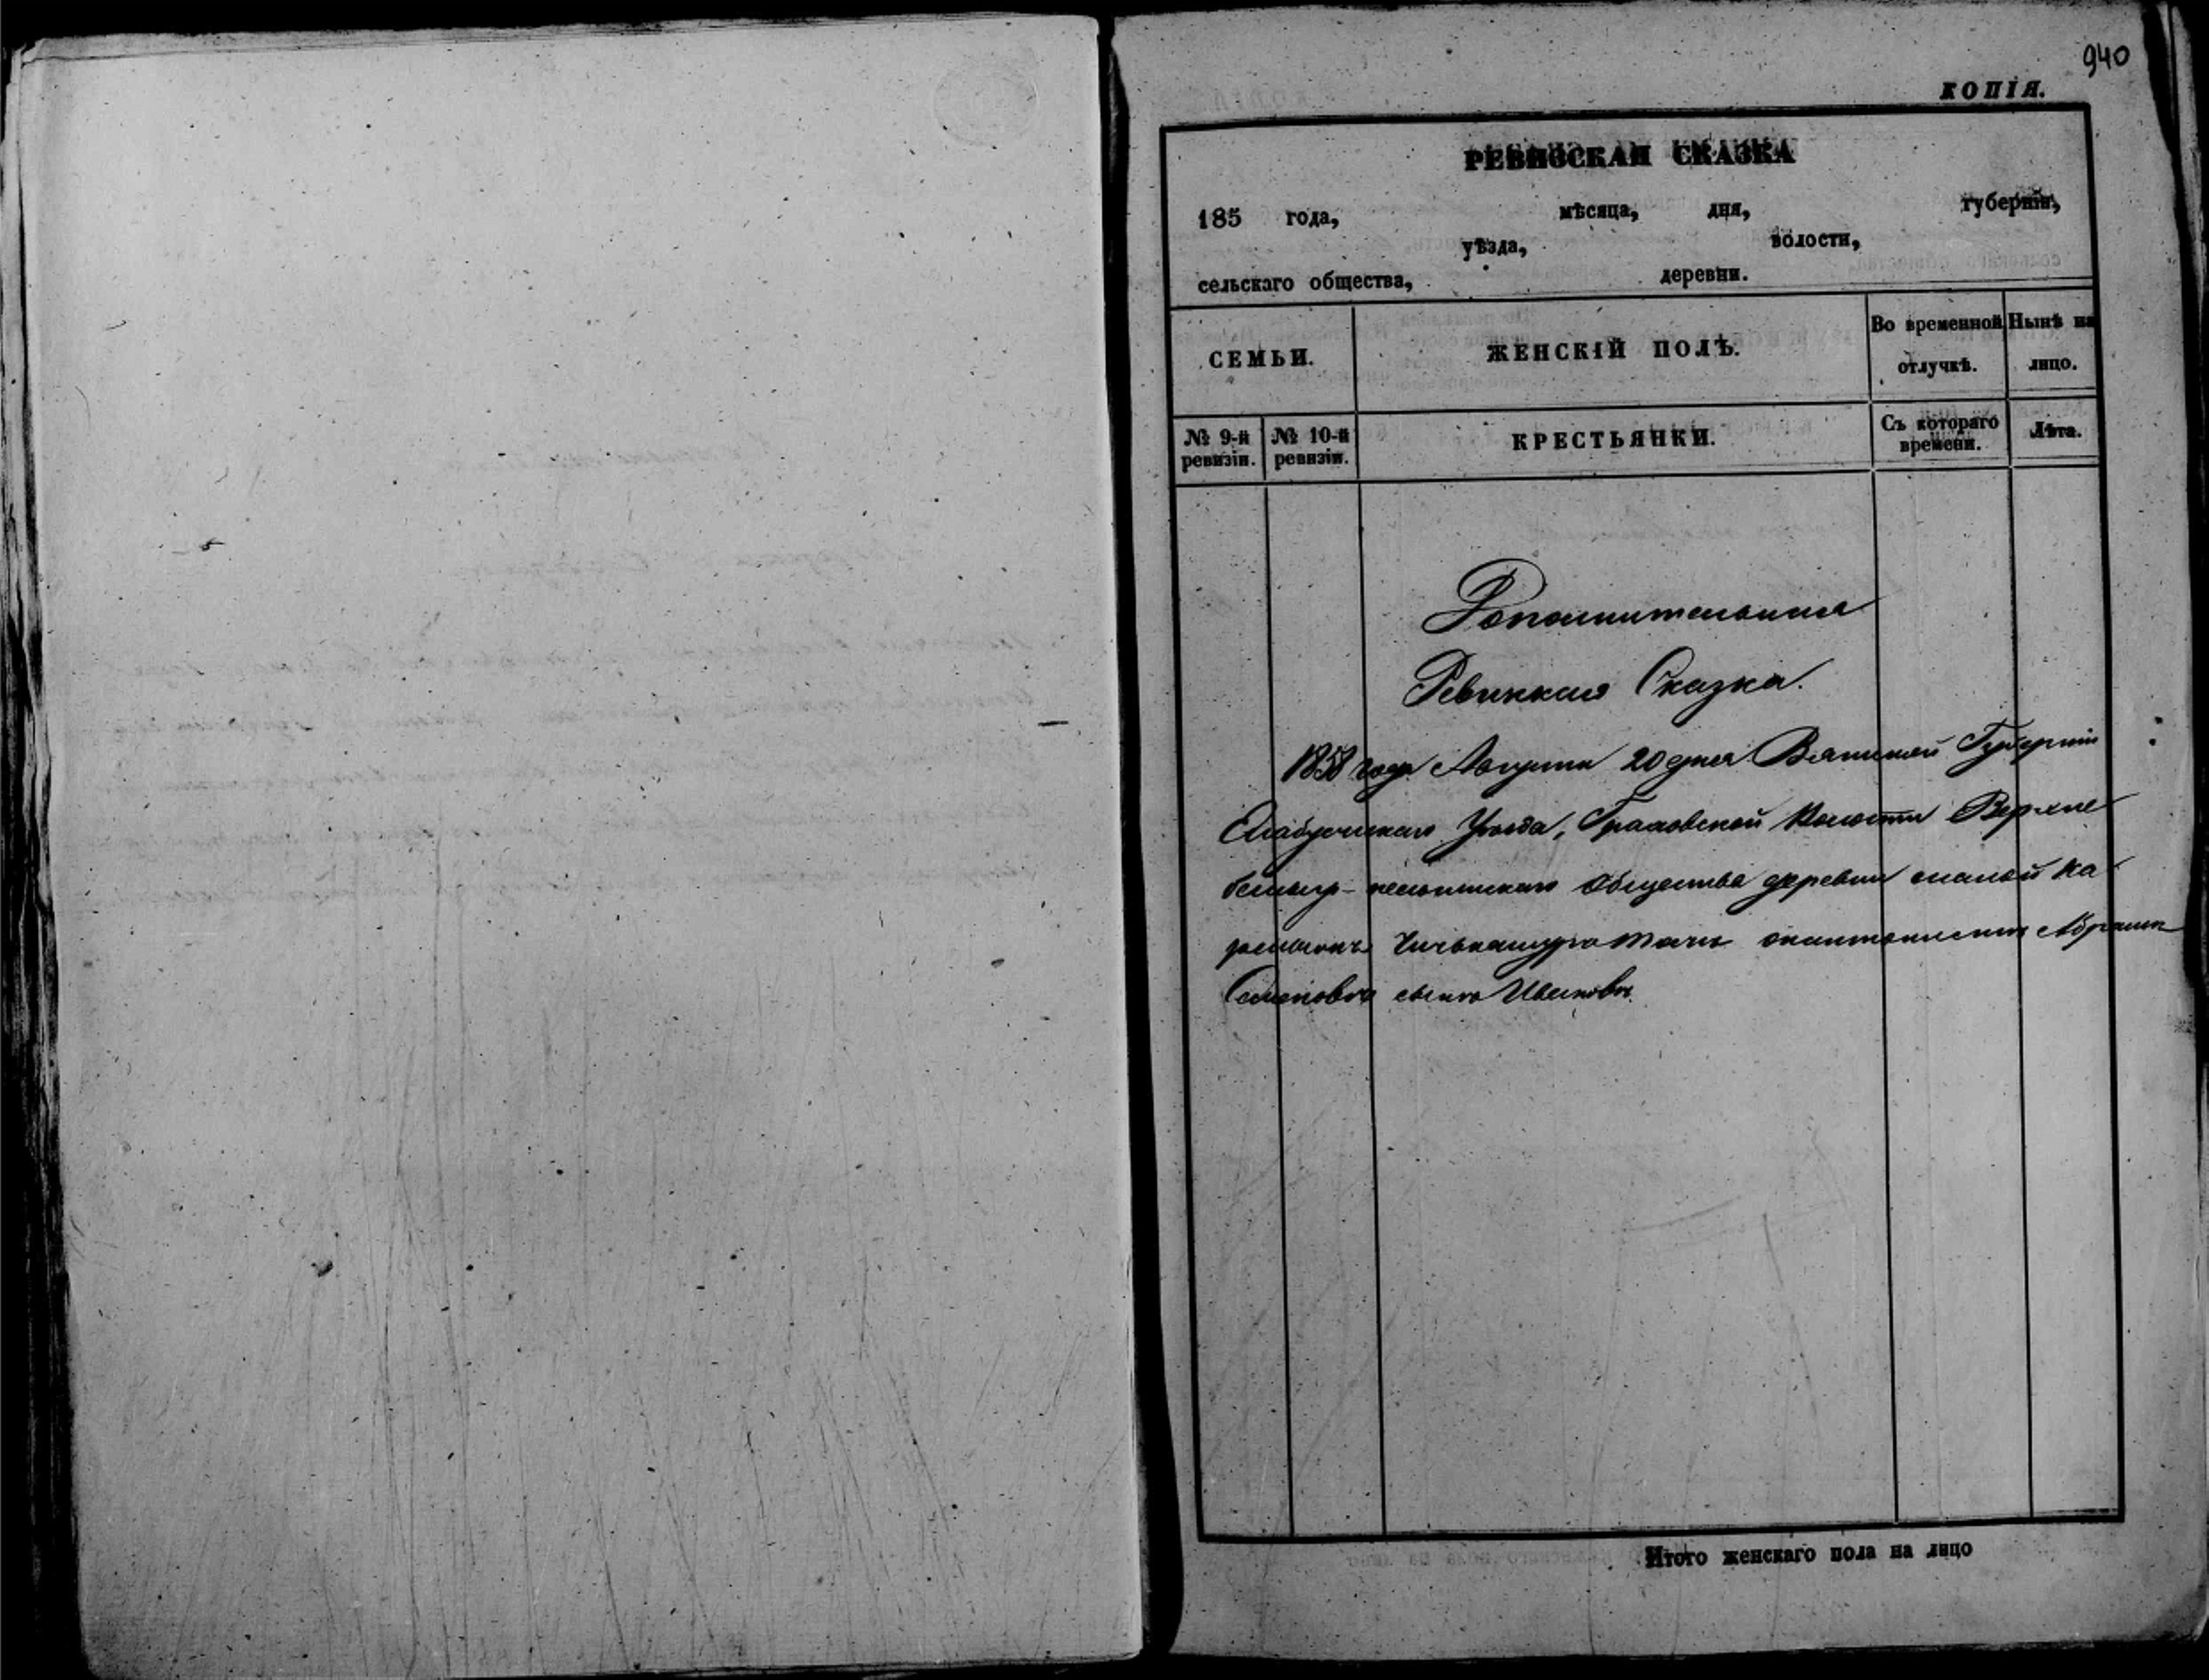 940
КОПІЯ.
РЕВИЗСКАЯ СКАЗКА
185 года, мѣсяца, дня, губерніи,
уѣзда, волости,
сельскаго общества, деревни.
СЕМЬИ.
ЖЕНСКІЙ ПОЛЪ.
Во временной отлучкѣ.
Нынѣ на лицо.
№ 9-й ревизіи.
№ 10-й ревизіи.
КРЕСТЬЯНКИ.
Съ котораго времени.
Лѣта.
Дополнительная
Ревизкая Сказка.
1858 года Августа 20 дня Вятской Губерніи
Елабужскаго Уѣзда, Граховской Волости Верхне
общества деревни малой Ка
Абрама
Семенова сына Иванова
Итого женскаго пола на лицо